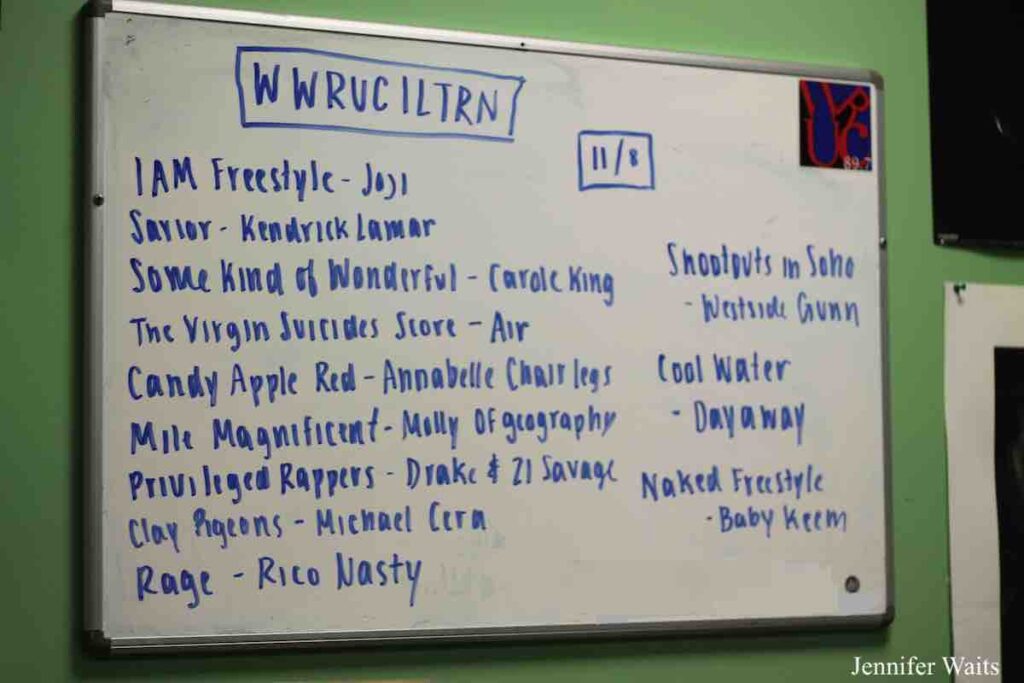 WWRUCILTRN
11/8
IAM Freestyle - Joji
Savior - Kendrick Lamar
Some Kind of Wonderful - Carole King
The Virgin Suicides Score - Air
Candy Apple Red - Annabelle Chairlegs
Mile Magnificent - Molly OFgeography
Privileged Rappers - Drake & 21 Savage
Clay Pigeons - Michael Cera
Rage - Rico Nasty
Shootouts in Soho
- Westside Gunn
Cool Water
- Dayaway
Naked Freestyle
- Baby Keem
WRUC
89.7
Jennifer Waits